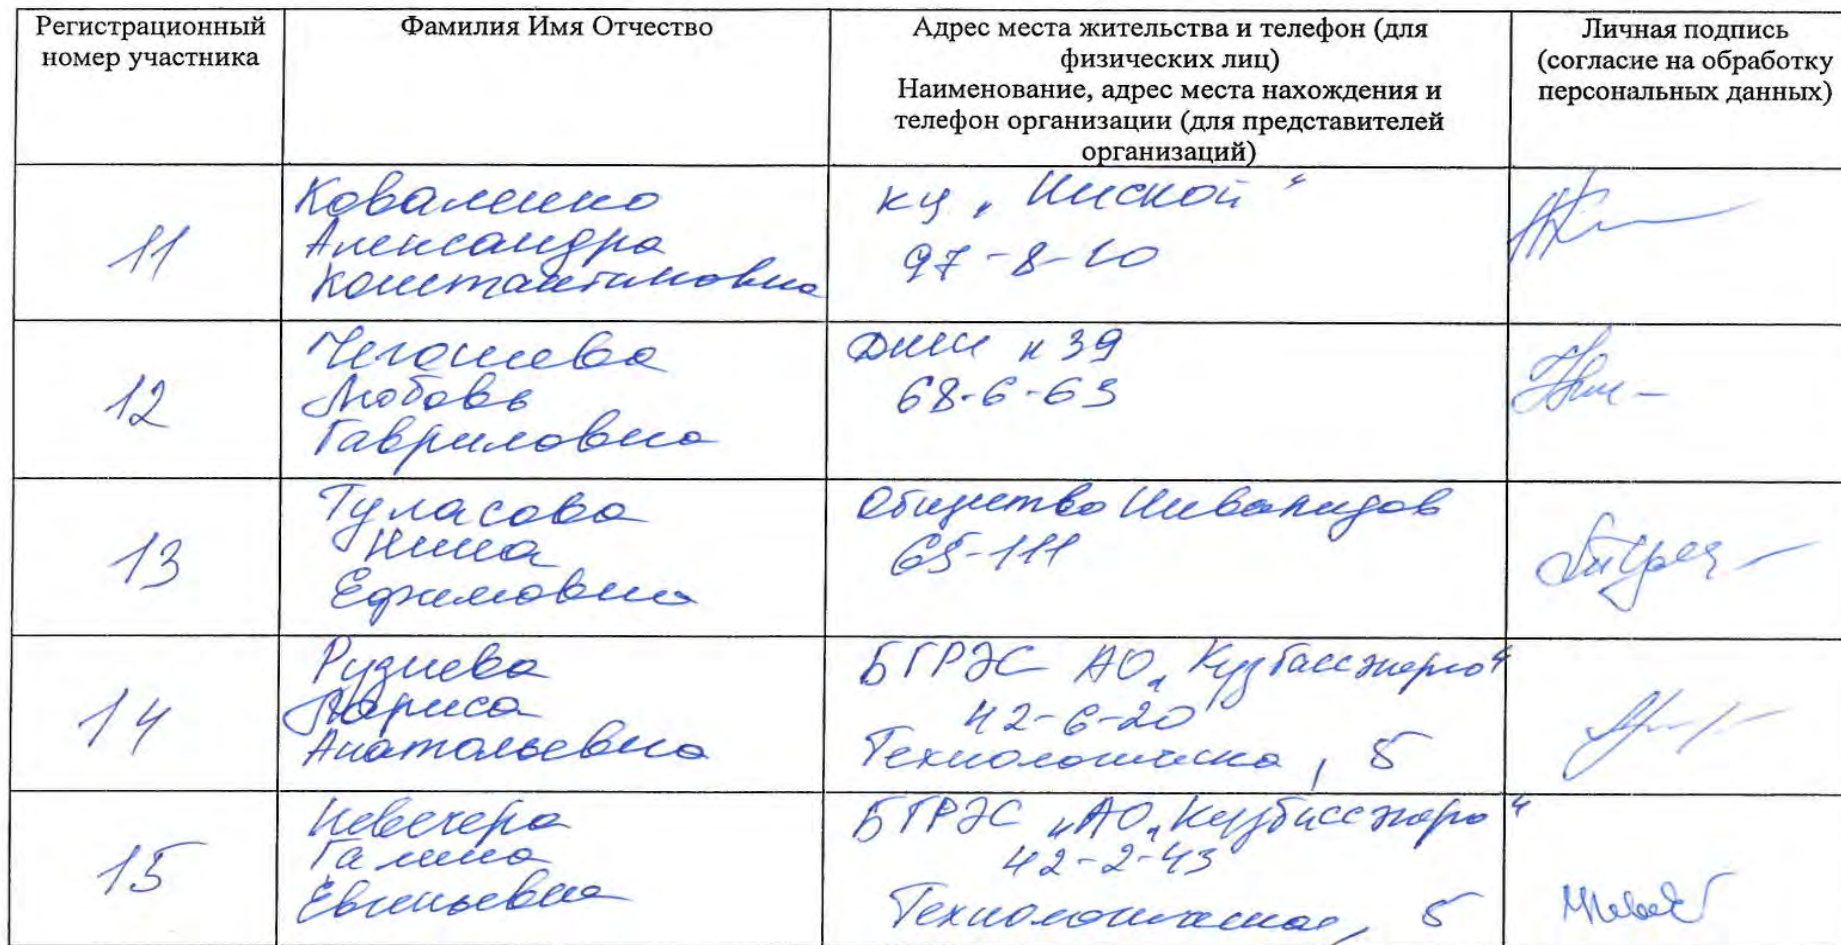 Регистрационный
номер участника
Фамилия Имя Отчество
Адрес места жительства и телефон (для
физических лиц)
Наименование, адрес места нахождения и
телефон организации (для представителей
организаций)
Личная подпись
(согласие на обработку
персональных данных)
11
Коваленко
Александра
Константиновна
КЦ „Инской“
97-8-10
12
Любовь
Гавриловна
68-6-63
13
Туласова
Нина
Ефимовна
Общество Инвалидов
65-111
14
Рузиева
Лариса
Анатольевна
БГРЭС АО „Кузбассэнерго“
42-6-20
Технологическа, 5
15
Невечера
Галина
Евгеньевна
БГРЭС „АО „Кузбассэнерго“
42-2-43
Технологическая, 5